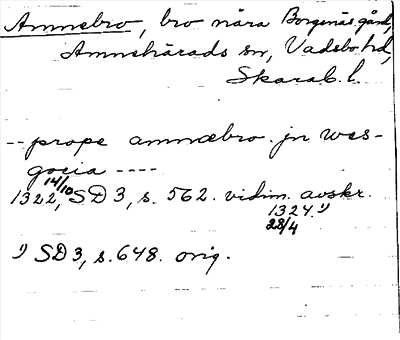 Amnebro, bro nära Borgenäs gård,
Amnehärads sn, Vadsbo hd,
Skarab. l.
-- prope amnæbro jn wes-
gocia ----
1322 14/10, SD 3, s. 562. vidim. avskr.
1324 1)
28/4
1) SD 3, s. 648. orig.